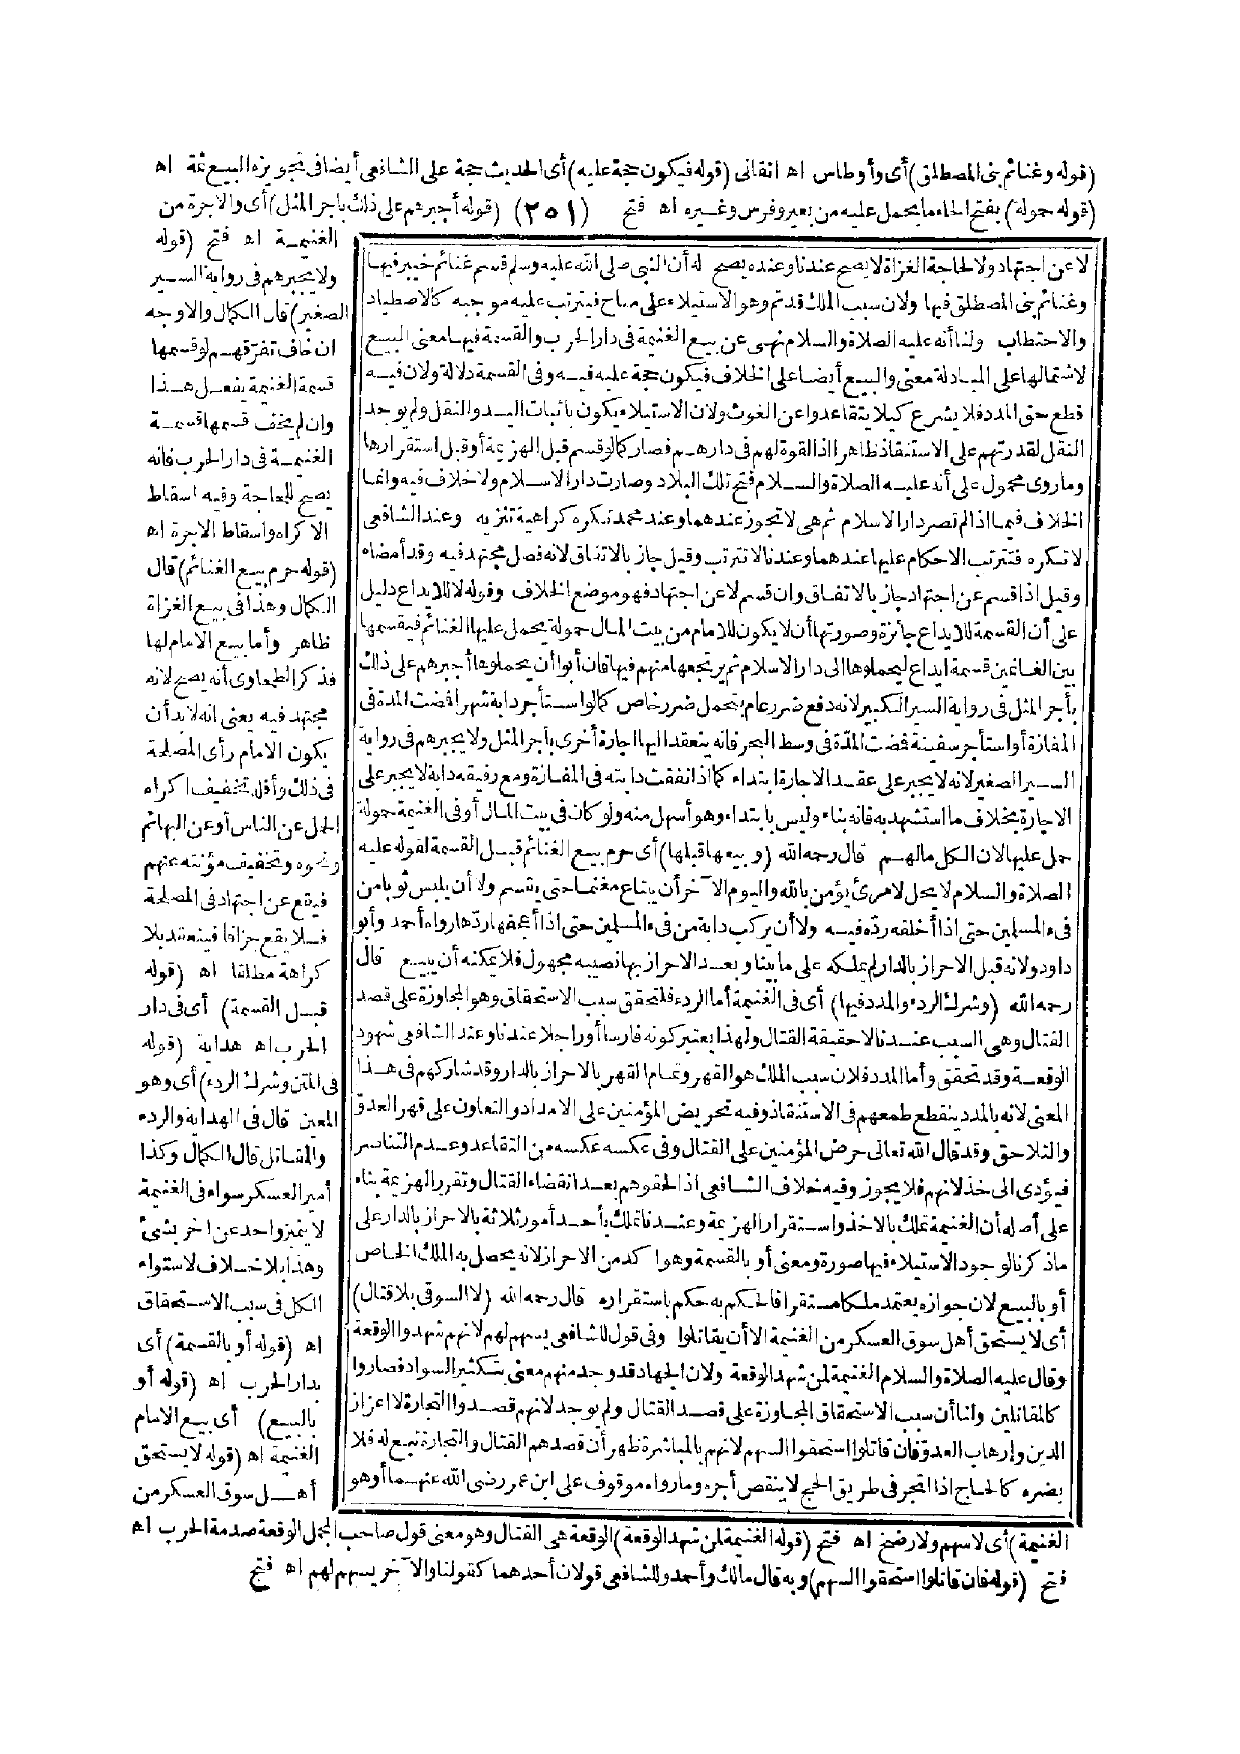 (قوله وغنائم بنى المصطلق) أى وأوطاس اه اتقانى (قوله فيكون حجة عليه) أى الحديث حجة على الشافعى أيضا فى تجويزه البيع ثمة اه
(قوله حمولة) بفتح الحاء ما يحمل عليه من بعير وفرس وغيره اه فتح (٢٥١) (قوله أجبرهم على ذلك بأجر المثل) أى والاجرة من
الغنيمة اه فتح (قوله
ولا يجبرهم فى رواية السير
الصغير) قال الكمال والاوجه
ان خاف تفرقهم لو قسمها
قسمة الغنيمة يفعل هذا
وان لم يخف قسمها قسمة
الغنيمة فى دار الحرب فانه
يصح للحاجة وفيه اسقاط
الاكراه واسقاط الاجرة اه
(قوله حرم بيع الغنائم) قال
الكمال وهذا فى بيع الغزاة
ظاهر وأما بيع الامام لها
فذكر الطحاوى أنه يصح لانه
مجتهد فيه يعنى انه لا بد أن
يكون الامام رأى المصلحة
فى ذلك وأقله تخفيف اكراه
الحمل عن الناس أو عن البهائم
ونحوه وتخفيف مؤنته عنهم
فيقع عن اجتهاد فى المصلحة
فلا يقع جزافا فينعقد بلا
كراهة مطلقا اه (قوله
قبل القسمة) أى فى دار
الحرب اه هداية (قوله
فى المتن وشرك الردء) أى وهو
المعين قال فى الهداية والردء
والمقاتل قال الكمال وكذا
أمير العسكر سواء فى الغنيمة
لا يتميز واحد عن اخر بشئ
وهذا بلا خلاف لاستواء
الكل فى سبب الاستحقاق
اه (قوله أو بالقسمة) أى
بدار الحرب اه (قوله أو
بالبيع) أى بيع الامام
الغنيمة اه (قوله لا يستحق
أهل سوق العسكر من
لا عن اجتهاد ولا لحاجة الغزاة لا يصح عندنا وعنده يصح له أن النبى صلى الله عليه وسلم قسم غنائم خيبر فيها
وغنائم بنى المصطلق فيها ولان سبب الملك قد تم وهو الاستيلاء على مباح فيترتب عليه موجبه كالاصطياد
والاحتطاب ولنا أنه عليه الصلاة والسلام نهى عن بيع الغنيمة فى دار الحرب والقسمة فيها معنى البيع
لاشتمالها على المبادلة معنى والبيع أيضا على الخلاف فيكون حجة عليه فيه وفى القسمة دلالة ولان فيه
قطع حق المدد فلا يشرع كيلا يتقاعدوا عن الغوث ولان الاستيلاء يكون باثبات اليد والنقل ولم يوجد
النقل لقدرتهم على الاستنقاذ ظاهرا اذ القوة لهم فى دارهم فصار كما لو قسم قبل الهزيمة أو قبل استقرارها
وما روى محمول على أنه عليه الصلاة والسلام فتح تلك البلاد وصارت دار الاسلام ولا خلاف فيه وانما
الخلاف فيما اذا لم تصر دار الاسلام ثم هى لا تجوز عندهما وعند محمد تكره كراهية تنزيه وعند الشافعى
لا تكره فتترتب الاحكام عليها عندهما وعندنا لا تترتب وقيل جاز بالاتفاق لانه فصل مجتهد فيه وقد أمضاه
وقيل اذا قسم عن اجتهاد جاز بالاتفاق وان قسم لا عن اجتهاد فهو موضع الخلاف وقوله لا للايداع دليل
على أن القسمة للايداع جائزة وصورتها أن لا يكون للامام من بيت المال حمولة يحمل عليها الغنائم فيقسمها
بين الغانمين قسمة ايداع ليحملوها الى دار الاسلام ثم يرتجعها منهم فيها فان أبوا أن يحملوها أجبرهم على ذلك
بأجر المثل فى رواية السير الكبير لانه دفع ضرر عام بتحمل ضرر خاص كما لو استأجر دابة شهرا فمضت المدة فى
المفازة أو استأجر سفينة فمضت المدة فى وسط البحر فانه ينعقد اليها اجارة أخرى بأجر المثل ولا يجبرهم فى رواية
السير الصغير لانه لا يجبر على عقد الاجارة ابتداء كما اذا نفقت دابته فى المفازة ومع رفيقه دابة لا يجبر على
الاجارة بخلاف ما استشهد به فانه بناء وليس بابتداء وهو أسهل منه ولو كان فى بيت المال أو فى الغنيمة حمولة
حمل عليها لان الكل مالهم قال رحمه الله (وبيعها قبلها) أى حرم بيع الغنائم قبل القسمة لقوله عليه
الصلاة والسلام لا يحل لامرئ يؤمن بالله واليوم الآخر أن يبتاع مغنما حتى يقسم ولا أن يلبس ثوبا من
فىء المسلمين حتى اذا أخلقه رده فيه ولا أن يركب دابة من فىء المسلمين حتى اذا أعجفها ردها رواه أحمد وأبو
داود ولانه قبل الاحراز بالدار لم يملكه على ما بينا وبعد الاحراز بها نصيبه مجهول فلا يمكنه أن يبيع قال
رحمه الله (وشرك الردء والمدد فيها) أى فى الغنيمة أما الردء فلتحقق سبب الاستحقاق وهو المجاوزة على قصد
القتال وهى السبب عندنا لا حقيقة القتال ولهذا يعتبر كونه فارسا أو راجلا عندنا وعند الشافعى شهود
الوقعة وقد تحقق وأما المدد فلان سبب الملك هو القهر وتمام القهر بالاحراز بالدار وقد شاركهم فى هذا
المعنى لانه بالمدد ينقطع طمعهم فى الاستنقاذ وفيه تحريض المؤمنين على الامداد والتعاون على قهر العدو
والتلاحق وقد قال الله تعالى حرض المؤمنين على القتال وفى عكسه عكسه من التقاعد وعدم التناصر
فيؤدى الى خذلانهم فلا يجوز وفيه خلاف الشافعى اذا لحقوهم بعد انقضاء القتال وتقرر الهزيمة بناء
على أصله أن الغنيمة تملك بالاخذ واستقرار الهزيمة وعندنا تملك بأحد أمور ثلاثة بالاحراز بالدار على
ماذكرنا لوجود الاستيلاء فيها صورة ومعنى أو بالقسمة وهو آكد من الاحراز لانه يحصل به الملك الخاص
أو بالبيع لان جوازه يعتمد ملكا مستقرا فالحكم به حكم باستقراره قال رحمه الله (لا السوقى بلا قتال)
أى لا يستحق أهل سوق العسكر من الغنيمة الا أن يقاتلوا وفى قول للشافعى يسهم لهم لانهم شهدوا الوقعة
وقال عليه الصلاة والسلام الغنيمة لمن شهد الوقعة ولان الجهاد قد وجد منهم معنى بتكثير السواد فصاروا
كالمقاتلين ولنا أن سبب الاستحقاق المجاوزة على قصد القتال ولم يوجد لانهم قصدوا التجارة لا اعزاز
الدين وارهاب العدو فان قاتلوا استحقوا السهم لانهم بالمباشرة ظهر أن قصدهم القتال والتجارة تبع له فلا
يضره كالحاج اذا اتجر فى طريق الحج لا ينقص أجره وما رواه موقوف على ابن عمر رضى الله عنهما أو هو
الغنيمة) أى لا سهم ولا رضخ اه فتح (قوله الغنيمة لمن شهد الوقعة) الوقعة هى القتال وهو معنى قول صاحب المجمل الوقعة صدمة الحرب اه
فتح (قوله فان قاتلوا استحقوا السهم) وبه قال مالك وأحمد وللشافعى قولان أحدهما كقولنا والآخر يسهم لهم اه فتح